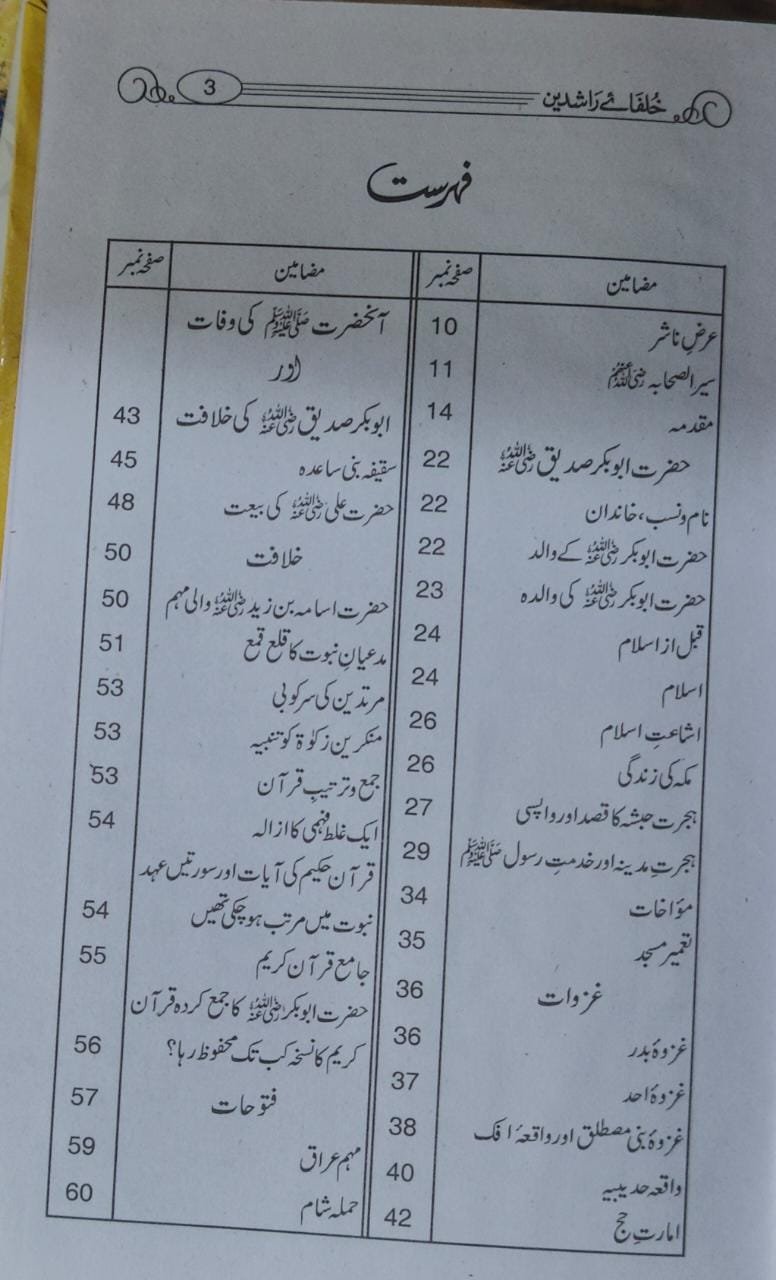 خُلفَائے رَاشدین 3
فہرست
مضامین صفحہ نمبر
عرضِ ناشر 10
سیر الصحابہ رضی اللہ عنہم 11
مقدمہ 14
حضرت ابوبکر صدیق رضی اللہ عنہ 22
نام ونسب، خاندان 22
حضرت ابوبکر رضی اللہ عنہ کے والد 22
حضرت ابوبکر رضی اللہ عنہ کی والدہ 23
قبل از اسلام 24
اسلام 24
اشاعتِ اسلام 26
مکہ کی زندگی 26
ہجرت حبشہ کا قصد اور واپسی 27
ہجرتِ مدینہ اور خدمتِ رسول صلی اللہ علیہ وسلم 29
مؤاخات 34
تعمیر مسجد 35
غزوات 36
غزوۂ بدر 36
غزوۂ احد 37
غزوۂ بنی مصطلق اور واقعۂ افک 38
واقعہ حدیبیہ 40
امارتِ حج 42
مضامین صفحہ نمبر
آنحضرت صلی اللہ علیہ وسلم کی وفات
اور
ابوبکر صدیق رضی اللہ عنہ کی خلافت 43
سقیفہ بنی ساعدہ 45
حضرت علی رضی اللہ عنہ کی بیعت 48
خلافت 50
حضرت اسامہ بن زید رضی اللہ عنہ والی مہم 50
مدعیانِ نبوت کا قلع قمع 51
مرتدین کی سرکوبی 53
منکرین زکوٰۃ کو تنبیہ 53
جمع و ترتیبِ قرآن 53
ایک غلط فہمی کا ازالہ 54
قرآن حکیم کی آیات اور سورتیں عہد
نبوت میں مرتب ہوچکی تھیں 54
جامع قرآن کریم 55
حضرت ابوبکر رضی اللہ عنہ کا جمع کردہ قرآن
کریم کا نسخہ کب تک محفوظ رہا؟ 56
فتوحات 57
مہم عراق 59
حملہ شام 60